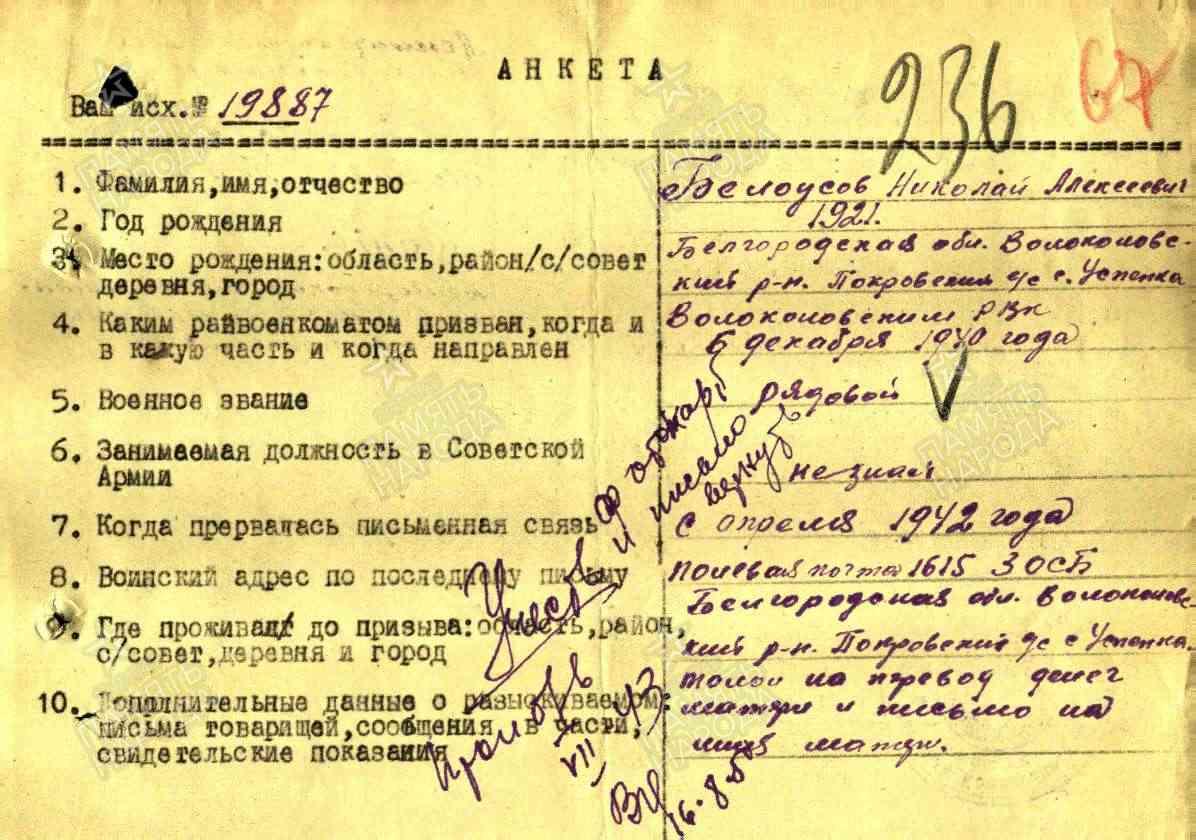 АНКЕТА
236
67
Ваш исх.№ 19887
1. Фамилия,имя,отчество
Белоусов Николай Алексеевич
2. Год рождения
1921.
3. Место рождения:область,район/с/совет
деревня,город
Белгородская обл. Волоконовс-
кий р-н. Покровский с/с с. Успенка
4. Каким райвоенкоматом призван,когда и
в какую часть и когда направлен
Волоконовским РВК
6 декабря 1940 года
5. Военное звание
рядовой
6. Занимаемая должность в Советской
Армии
не знаем
7. Когда прервалась письменная связь
с апреля 1942 года
8. Воинский адрес по последнему письму
полевая почта 1615 3 ОСБ
9. Где проживал до призыва:область,район,
с/совет,деревня и город
Белгородская обл. Волоконовс-
кий р-н. Покровский с/с с Успенка.
10. Дополнительные данные о разыскиваемом:
письма товарищей,сообщения в части,
свидетельские показания
талон на перевод денег
матери и письмо на
имя матери.
Учесть
и письмо
вернуть
VII 43
16.8.5
ПАМЯТЬ
НАРОДА